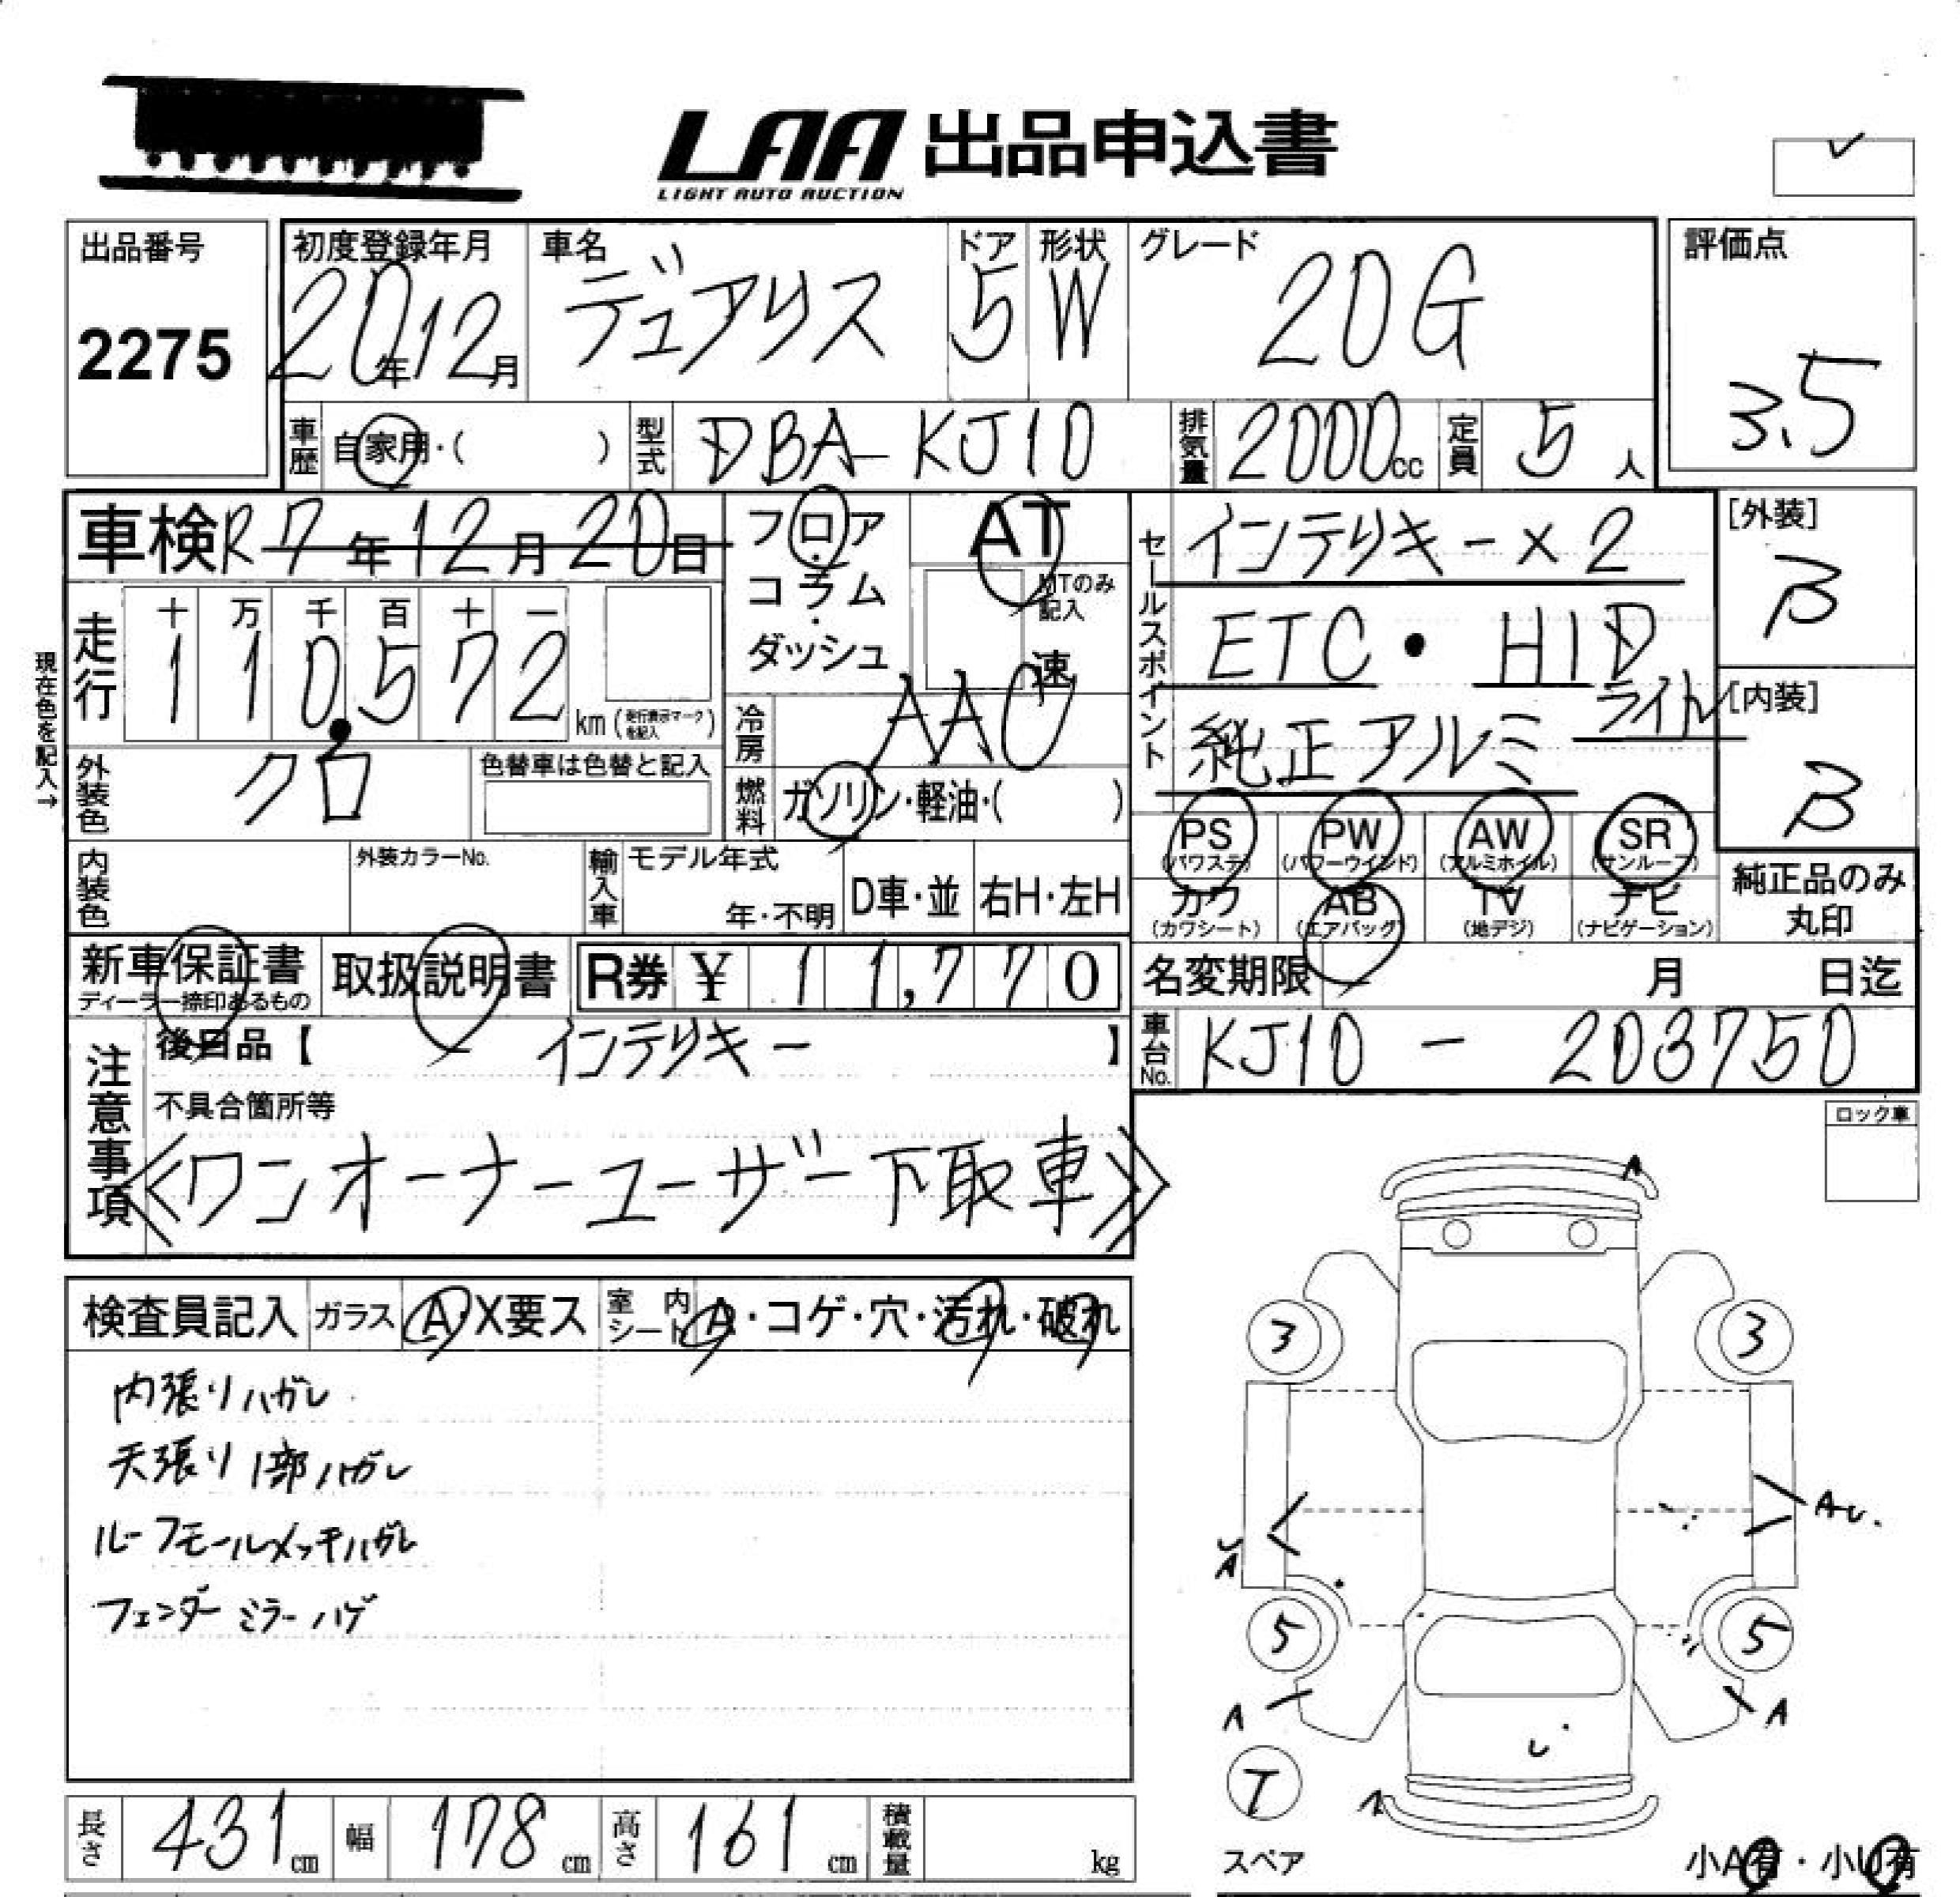 LAA 出品申込書
LIGHT AUTO AUCTION
出品番号
2275
初度登録年月
20年12月
車名
デュアリス
ドア
5
形状
W
グレード
20G
評価点
3.5
車歴
自家用・( )
型式
DBA-KJ10
排気量
2000cc
定員
5人
車検 R7年12月20日
フロア・コラム・ダッシュ
AT
MTのみ記入
速
セールスポイント
インテリキー×2
ETC・HIDライト
純正アルミ
[外装]
B
[内装]
B
現在色を記入→
走行
十 万 千 百 十 一
1 1 0 5 7 2
km(走行表示マークを記入)
冷房
AAC
外装色
クロ
色替車は色替と記入
燃料
ガソリン・軽油・( )
PS (パワステ) PW (パワーウインド) AW (アルミホイル) SR (サンルーフ)
カワ (カワシート) AB (エアバッグ) TV (地デジ) ナビ (ナビゲーション)
純正品のみ丸印
内装色
外装カラーNo.
輸入車
モデル年式
年・不明
D車・並
右H・左H
新車保証書
ディーラー捺印あるもの
取扱説明書
R券 ¥ 11,770
名変期限 月 日迄
車台No.
KJ10 - 203750
注意事項
後日品【 インテリキー 】
不具合箇所等
≪ワンオーナーユーザー下取車≫
ロック車
検査員記入
ガラス A・X要ス
室内シート A・コゲ・穴・汚れ・破れ
内張りハガレ
天張り1部ハガレ
ルーフモールメッキハガレ
フェンダーミラーハゲ
A
3 3
AU
U
A
5 5
A A
U
T
A
スペア
小A有・小U有
長さ 431cm
幅 178cm
高さ 161cm
積載量 kg